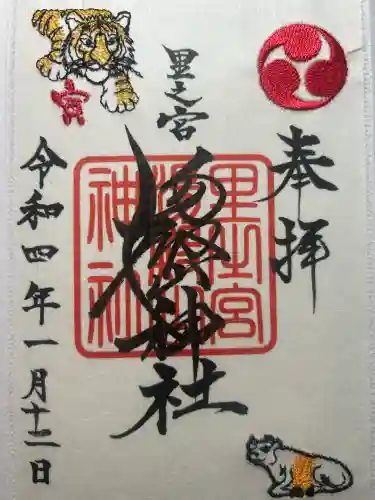 奉拝
里之宮
湯殿山神社
里之宮
湯殿山
神社
寅
令和四年一月十二日